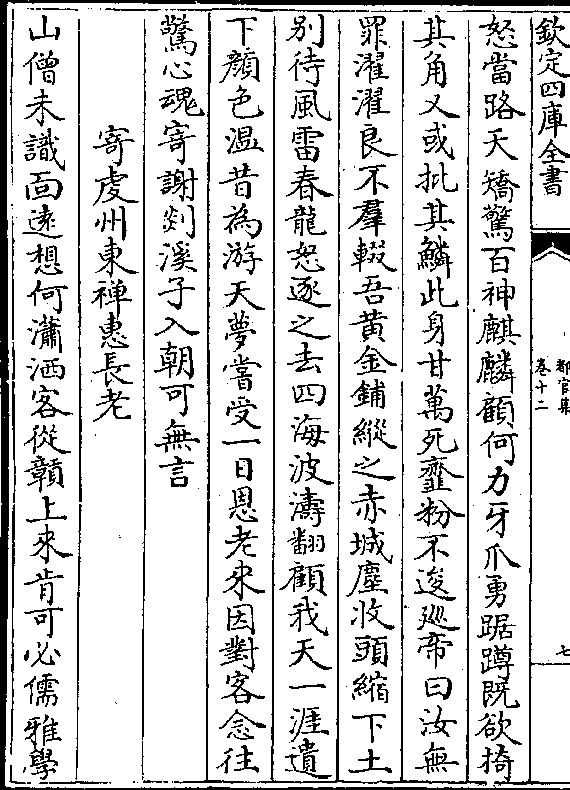 欽定四庫全書
都官集
卷十二
七
怒當路天矯驚百神麒麟顧何力牙爪勇踞蹲既欲掎
其角又或批其鱗此身甘萬死虀粉不逡巡帝曰汝無
罪濯濯良不羣輟吾黄金鋪縱之赤城塵收頭縮下土
别待風雷春龍怒逐之去四海波濤翻顧我天一涯遺
下顔色温昔為游天夢嘗受一日恩老來因對客念往
驚心魂寄謝剡溪子入朝可無言
寄䖍州東禪惠長老
山僧未識面遠想何瀟洒客從贑上來肯可必儒雅學